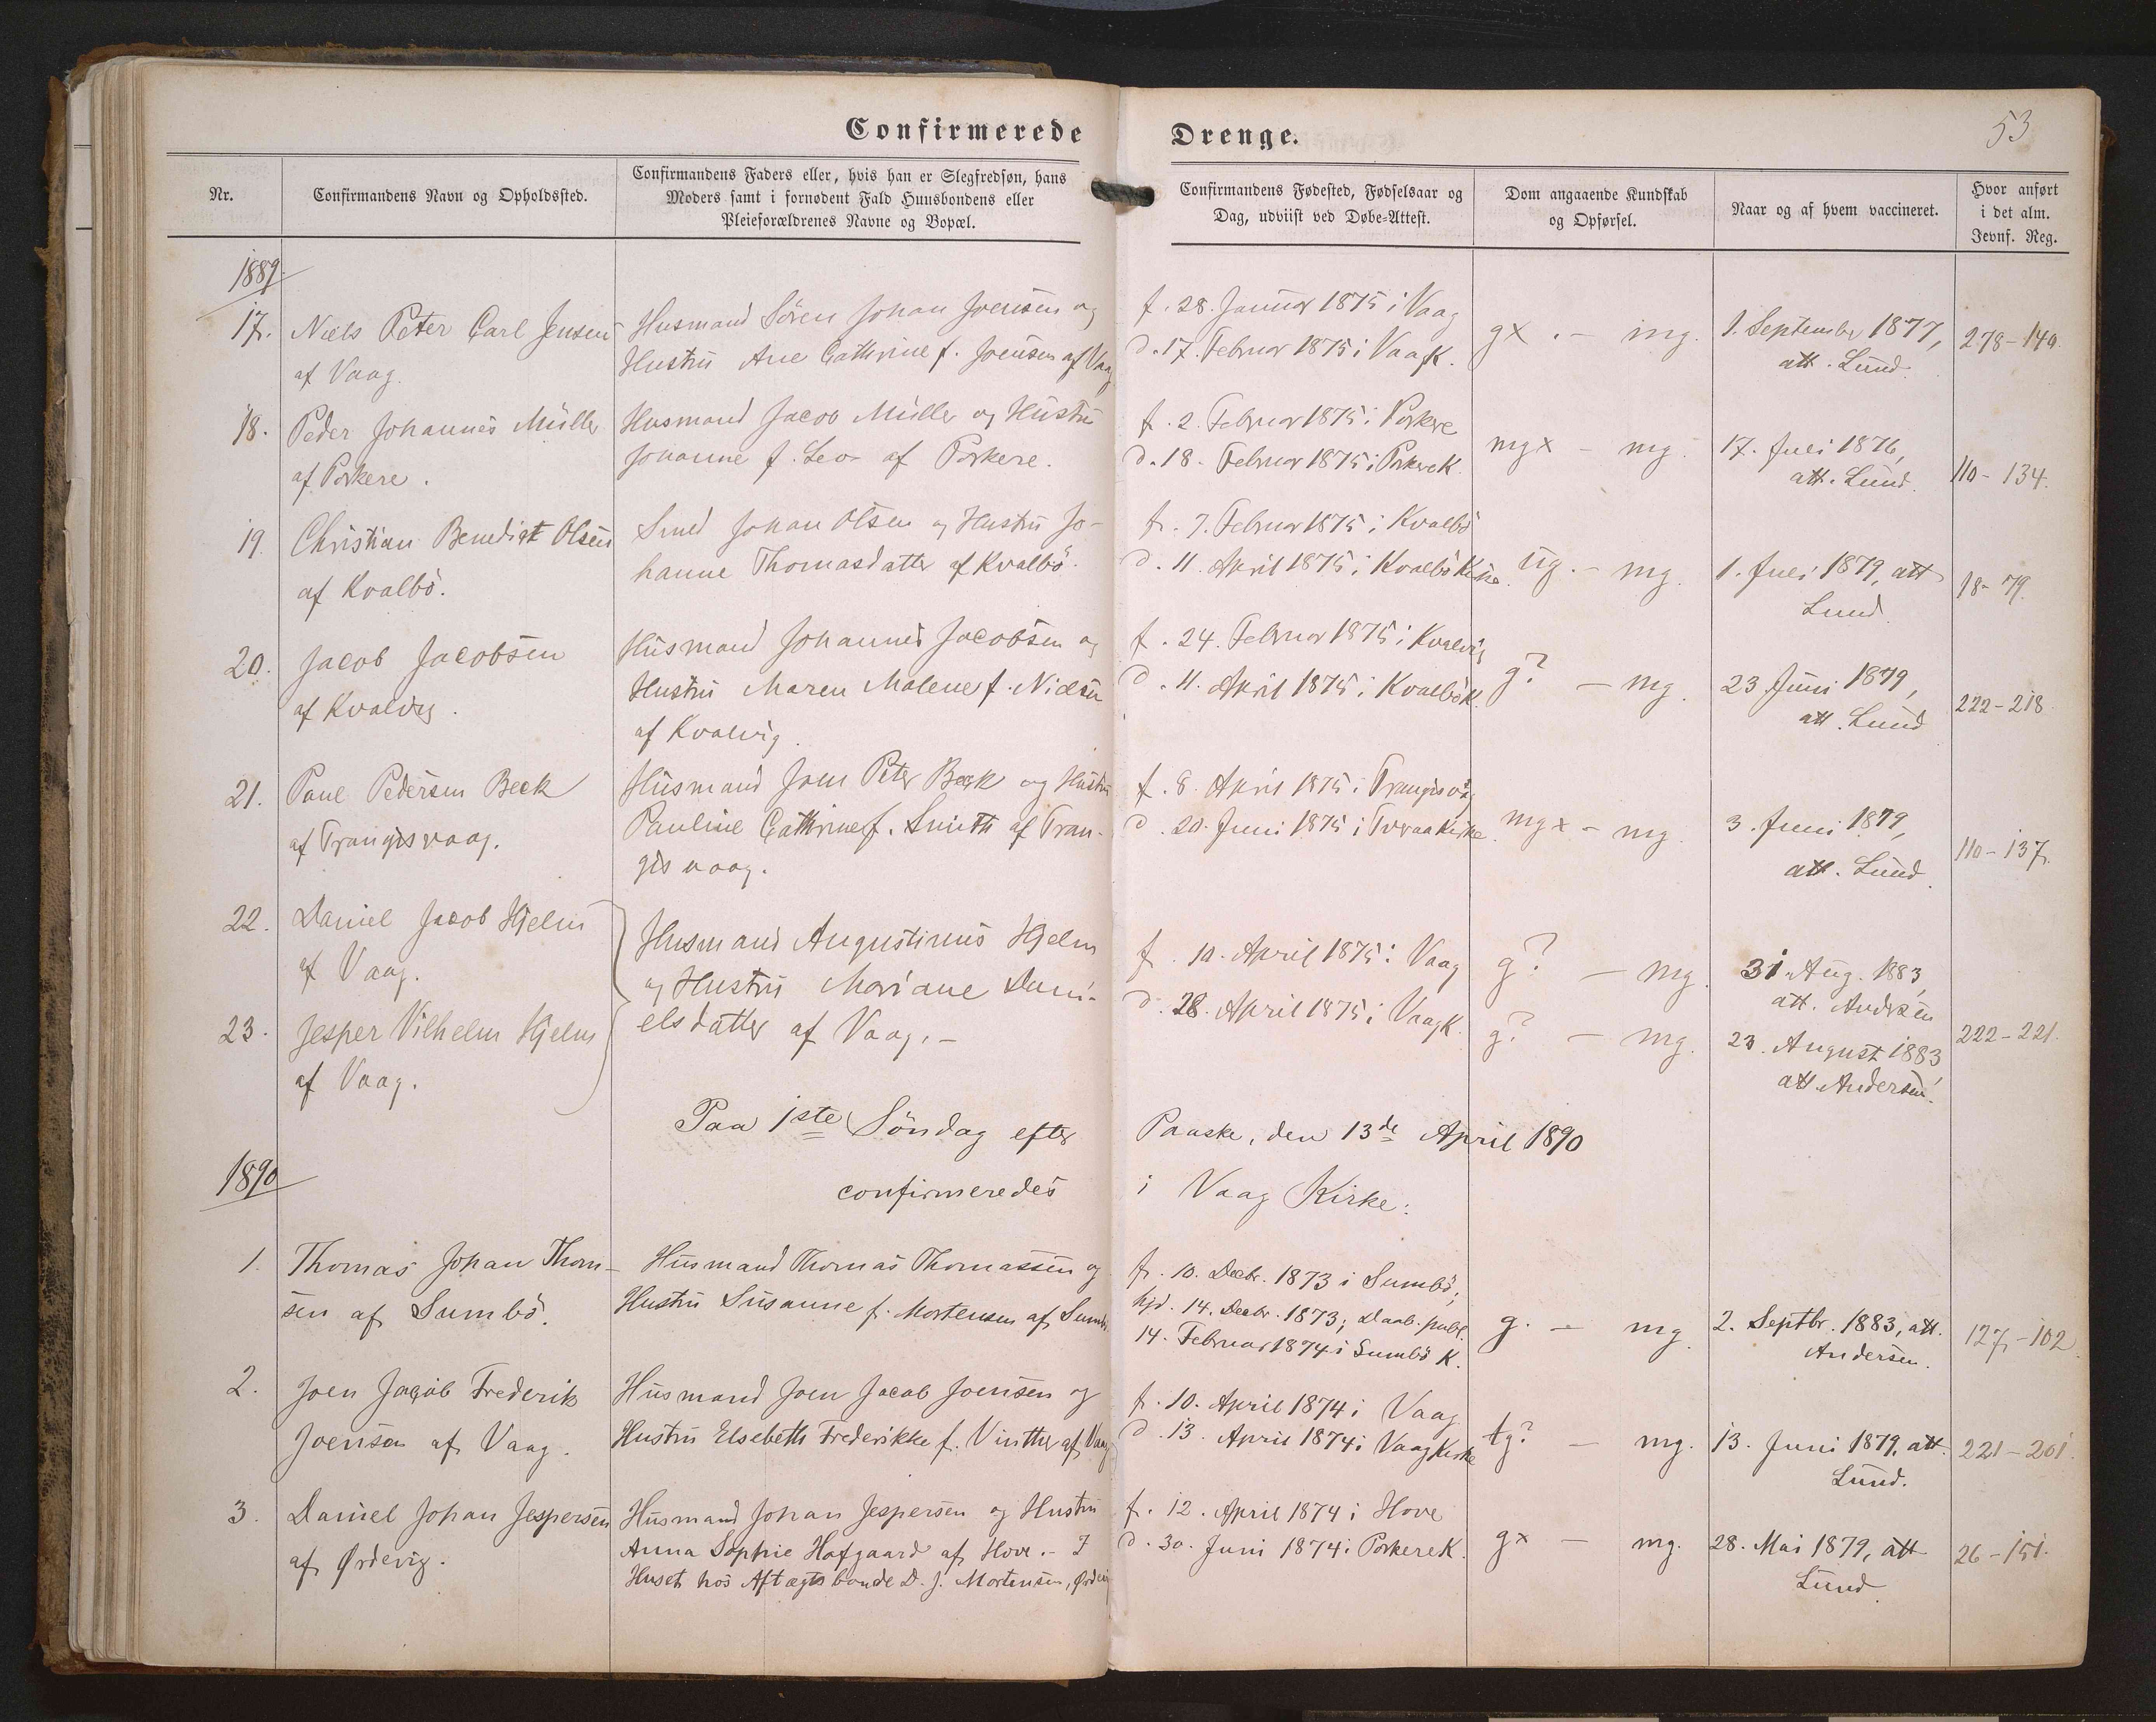 Confirmerede Drenge.
53
Nr.
Confirmandens Navn og Opholdssted.
Confirmandens Faders eller, hvis han er Slegfredsøn, hans
Moders samt i fornødent Fald Huusbondens eller
Pleieforældrenes Navne og Bopæl.
Confirmandens Fødested, Fødselsaar og
Dag, udviist ved Døbe-Attest.
Dom angaaende Kundskab
og Opførsel.
Naar og af hvem vaccineret.
Hvor anført
i det alm.
Jevnf. Reg.
1889
17.
Niels Peter Carl Jensen
af Vaag.
Husmand Sören Johan Joensen og
Hustru Ane Cathrine f. Joensen af Vaag
f. 28. Januar 1875 i Vaag
d. 17. Februar 1875 i Vaag K.
gx. - mg.
1. September 1877,
att. Lund.
278-140.
18.
Peder Johannes Müller
af Porkere.
Husmand Jacob Müller og Hustru
Johanne f. Leo af Porkere.
f. 2. Februar 1875 i Porkere
d. 18. Februar 1875 i Porkere K.
mgx - mg.
17. Juli 1876,
att. Lund.
110-134.
19.
Christian Benedikt Olsen
af Kvalbö.
Smed Johan Olsen og Hustru Jo-
hanne Thomasdatter af Kvalbö.
f. 7. Februar 1875 i Kvalbö
d. 11. April 1875 i Kvalbö Kirke.
ug. - mg.
1. Juli 1879, att
Lund.
18-79.
20.
Jacob Jacobsen
af Kvalvig.
Husmand Johannes Jacobsen og
Hustru Maren Malene f. Nielsen
af Kvalvig.
f. 24. Februar 1875 i Kvalvig
d. 11. April 1875 i Kvalbö K.
g? - mg.
23. Juni 1879,
att. Lund
222-218
21.
Paul Pedersen Beck
af Trangisvaag.
Husmand Joen Peter Beck og Hustru
Pauline Cathrine f. Smith af Tran-
gisvaag.
f. 8. April 1875 i Trangisvåg
d. 20. Juni 1875 i Tveraa Kirke.
mgx - mg.
3. Juni 1879,
att. Lund.
110-137.
22.
Daniel Jacob Hjelm
af Vaag.
Husmand Augustinus Hjelm
og Hustru Mariane Dani-
elsdatter af Vaag. -
f. 10. April 1875 i Vaag
d. 28. April 1875 i Vaag K.
g? - mg.
31. Aug. 1883,
att. Andersen
222-221.
23.
Jesper Vilhelm Hjelm
af Vaag.
g? - mg.
23. August 1883,
att Andersen.
Paa 1ste Söndag efter Paaske, den 13de April 1890
1890
confirmeredes i Vaag Kirke:
1.
Thomas Johan Thom-
sen af Sumbö.
Husmand Thomas Thomassen og
Hustru Susanne f. Mortensen af Sumbö.
f. 10. Decbr. 1873 i Sumbö;
hjd. 14. Decbr. 1873; Daab. publ.
14. Februar 1874 i Sumbö K.
g. - mg.
2. Septbr. 1883, att.
Andersen.
127-102.
2.
Joen Jacob Frederik
Joensen af Vaag.
Husmand Joen Jacob Joensen og
Hustru Elsebeth Frederikke f. Vinther af Vaag
f. 10. April 1874 i Vaag
d. 13. April 1874 i Vaag Kirke
tg? - mg.
13. Juni 1879, att.
Lund.
221-201.
3.
Daniel Johan Jespersen
af Ørdevig.
Husmand Johan Jespersen og Hustru
Anna Sophie Hofgaard af Hove. - I
Huset hos Aftægtsbonde D. J. Mortensen, Ørdevig
f. 12. April 1874 i Hove
d. 30. Juni 1874 i Porkere K.
gx - mg.
28. Mai 1879, att
Lund.
26-151.